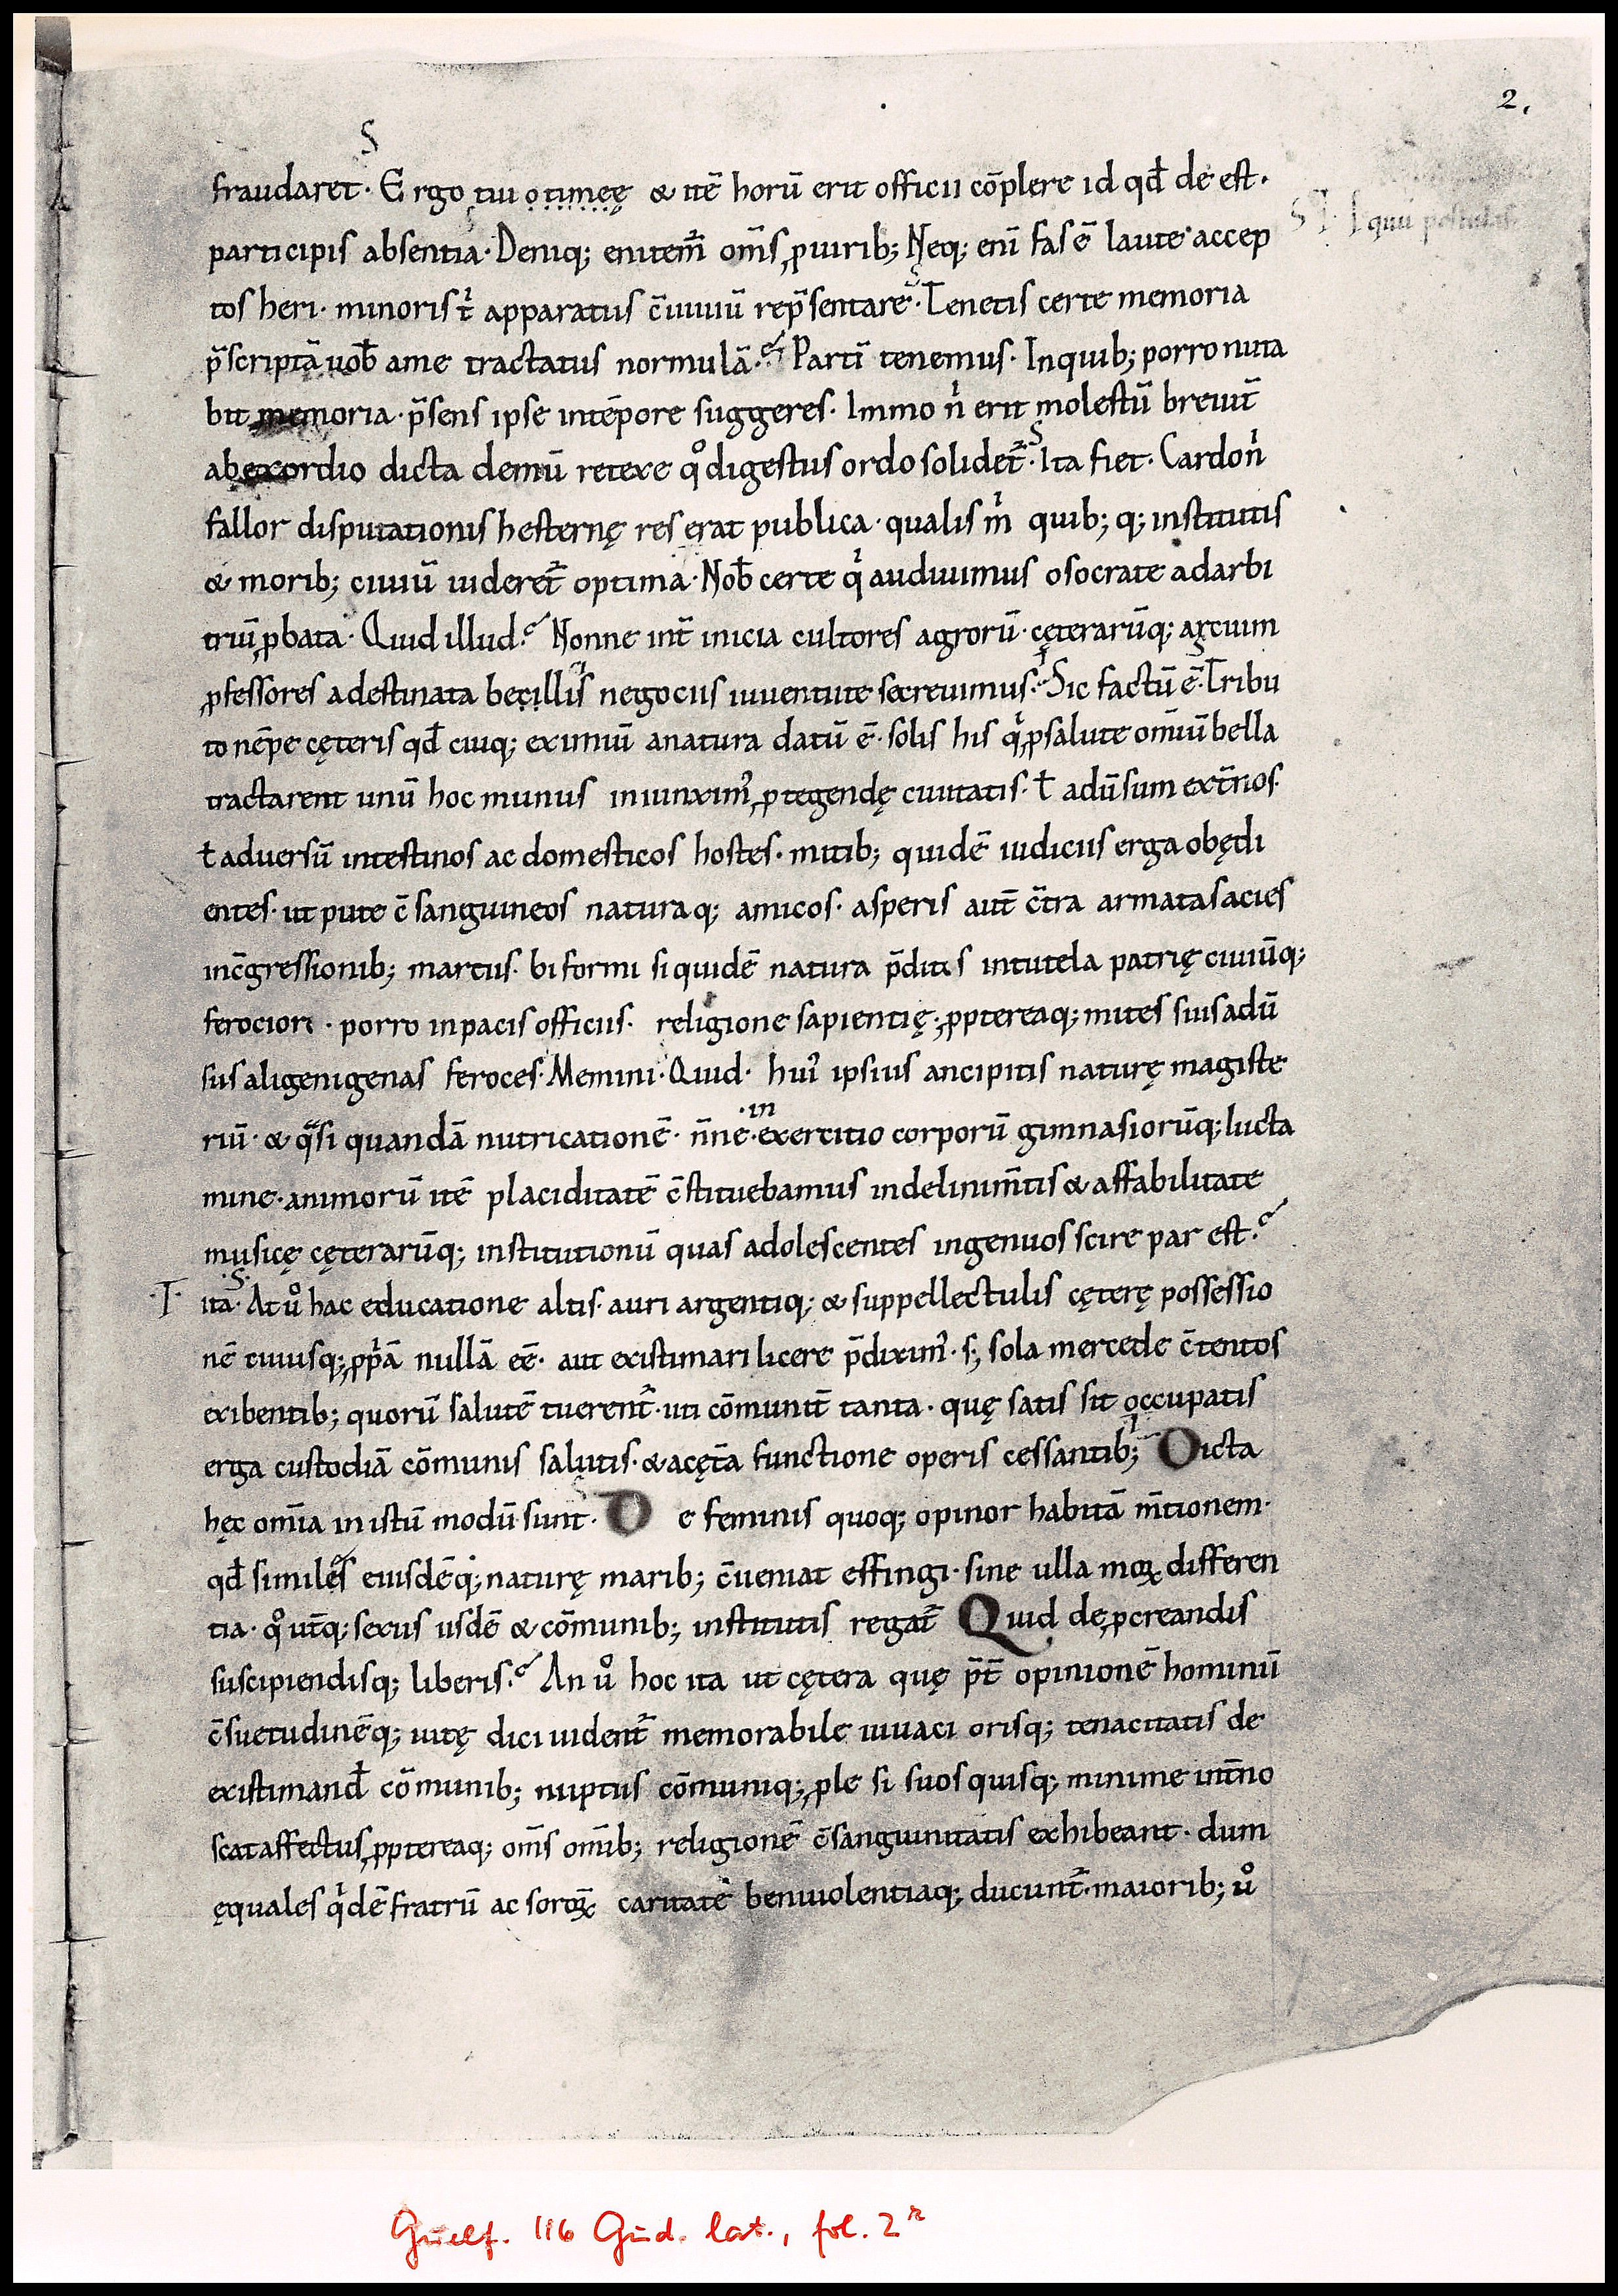 2.
S
fraudaret · Ergo tui o timeę & itē horū erit officii cōplere id qđ de est ·
S T. I quū postulas
participis absentia · Deniq; enitem̄ om̄s ꝓ uirib; Neq; eni fas ē laute accep
tos heri · minoris t̄ apparatus c̄uiuiū rep̄sentare · Tenetis certe memoria
p̄scriptā uob̄ ame tractatus normulā · Parti tenemus · Inquib; porro nuta
bit memoria · p̄sens ipse intēpore suggeres · Immo n̄ erit molestū breuit̄
abexordio dicta demū retexe qͦ digestus ordo solidet̄ · Ita fiet · Cardo n̄
fallor disputationis hesternę res erat publica · qualis m̄ quib; q; institutis
& morib; ciuiū uideret̄ optima · Nob̄ certe q̄ audiuimus o socrate adarbi
triū ꝓbata · Quid illud? Nonne int̄ inicia cultores agrorū · cęterarūq; arcium
ꝓfessores adestinata becillis negociis iuuentute secreuimus · Sic factū ē · Tribu
to nēpe cęteris qđ cuiq; eximiū anatura datū ē · solis his q̄ ꝓ salute om̄iū bella
tractarent unū hoc munus iniunxim᷒ ꝓtegendę ciuitatis · ł adūsum ext̄nos ·
ł aduersū intestinos ac domesticos hostes · mitib; quidē iudiciis erga obędi
entes · ut pute c̄sanguineos naturaq; amicos · asperis aut̄ c̄tra armatas acies
inc̄gressionib; martiis · biformi siquidē natura p̄ditis intutela patrię ciuiūq;
ferociori · porro inpacis officiis · religione sapientię · ꝓptereaq; mites suis adū
sus aligenigenas feroces · Memini · Quid · hui᷒ ipsius ancipitis naturę magiste
· in
riū · & qᵃsi quandā nutricationē · n̄ne · exercitio corporū gimnasiorūq; lucta
mine · animorū itē placiditatē c̄stituebamus indelinim̄tis & affabilitate
musicę cęterarūq; institutionū quas adolescentes ingenuos scire par est?
· T · ita · S · At uͦ hac educatione altis · auri argentiq; & suppellectulis cęterę possessio
nē cuiusq; ꝓp̄ā nullā eē · aut existimari licere p̄dixim᷒ · s; sola mercede c̄tentos
exibentib; quorū salutē tuerent̄ · uti cōmunit̄ tanta · quę satis sit occupatis
erga custodiā cōmunis salutis · & acęt̄a functione operis cessantib; Dicta
hęc om̄ia inistū modū sunt · De feminis quoq; opinor habitā m̄tionem ·
qđ similes eiusdēq; naturę marib; c̄ueniat effingi · sine ulla moꝝ differen
tia · qͦ ut̄q; sexus iisdē & cōmunib; institutis regat̄ Quid de ꝓcreandis
suscipiendisq; liberis? An uͦ hoc ita ut cętera quę p̄t̄ opinionē hominū
c̄suetudinēq; uitę dici uident̄ memorabile uiuaci orisq; tenacitatis de
existimand̄ cōmunib; nuptiis cōmuniq; ꝓle si suos quisq; minime int̄no
scat affectus ꝓptereaq; om̄s om̄ib; religionē c̄sanguinitatis exhibeant · dum
ęquales q̄dē fratrū ac soroꝝ caritate beniuolentiaq; ducunt̄ · maiorib; uͦ
Guelf. 116 Gud. lat., fol. 2ʳ